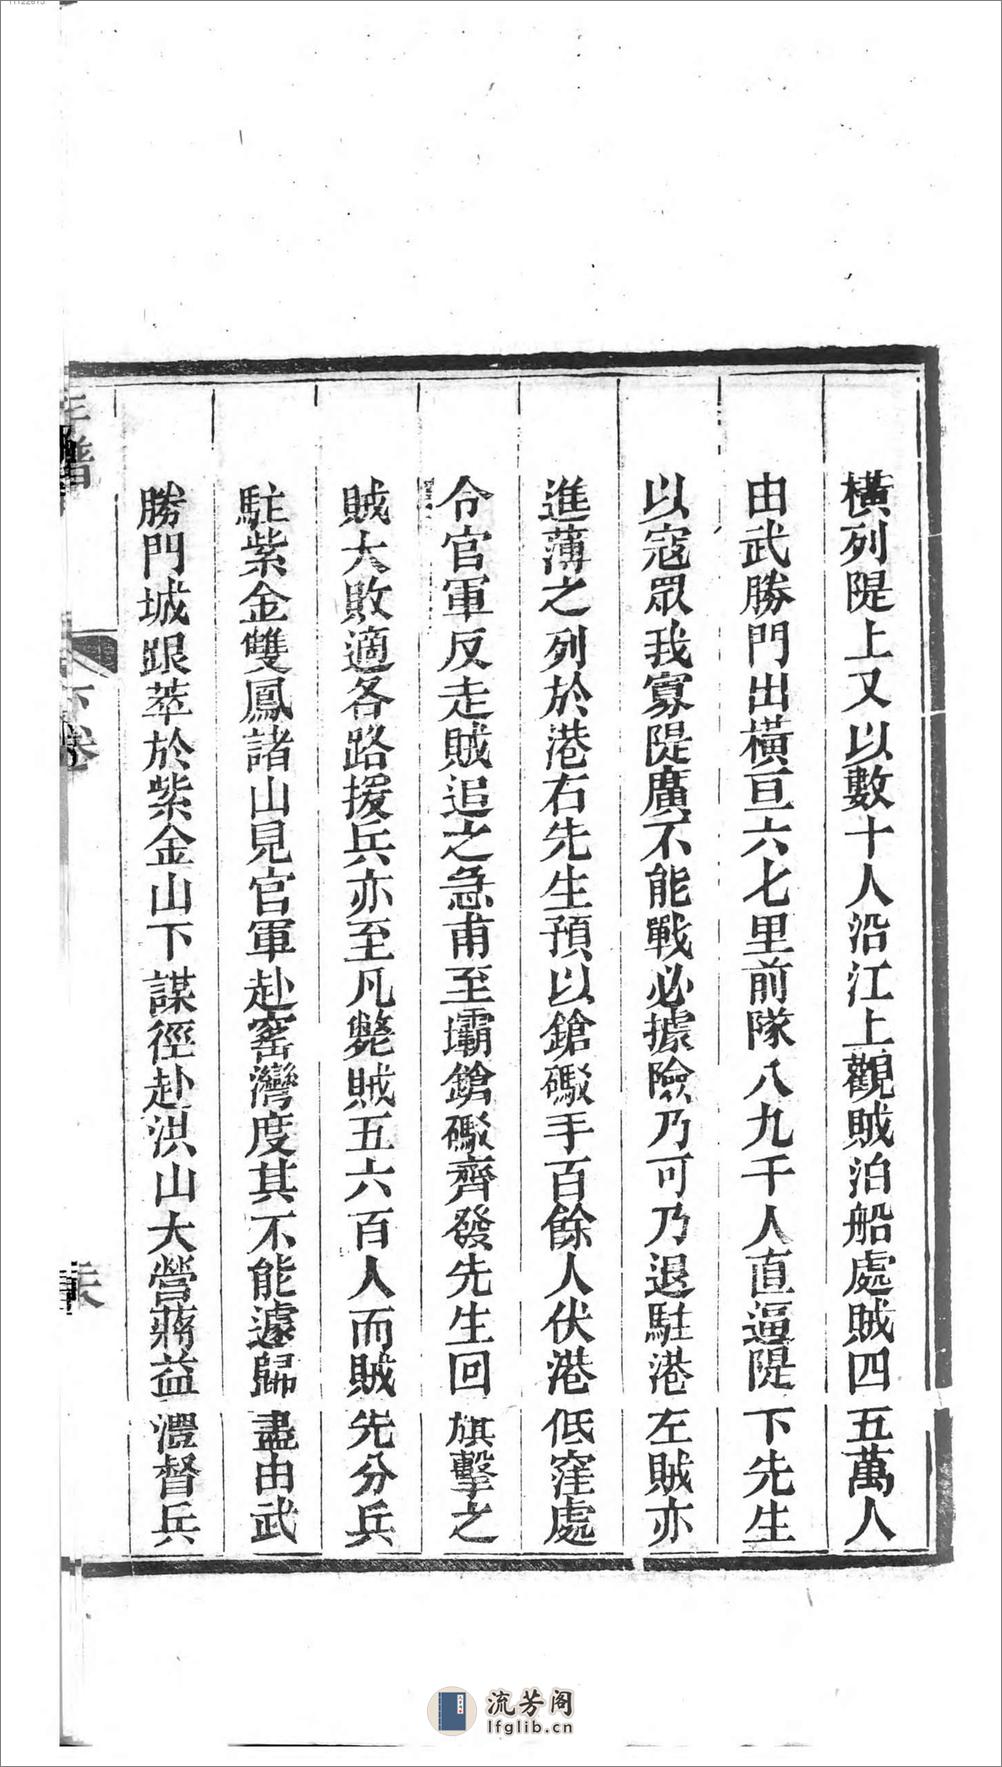 橫列隄上又以數十人沿江上觀賊泊船處賊四五萬人
由武勝門出橫亘六七里前隊八九千人直逼隄下先生
以寇眾我寡隄廣不能戰必據險乃可乃退駐港左賊亦
進薄之列於港右先生預以鎗礮手百餘人伏港低窪處
令官軍反走賊追之急甫至壩鎗礮齊發先生回旗擊之
賊大敗適各路援兵亦至凡斃賊五六百人而賊先分兵
駐紫金雙鳳諸山見官軍赴窰灣度其不能遽歸盡由武
勝門城跟萃於紫金山下謀徑赴洪山大營蔣益澧督兵
年譜
下卷
流芳阁
lfglib.cn